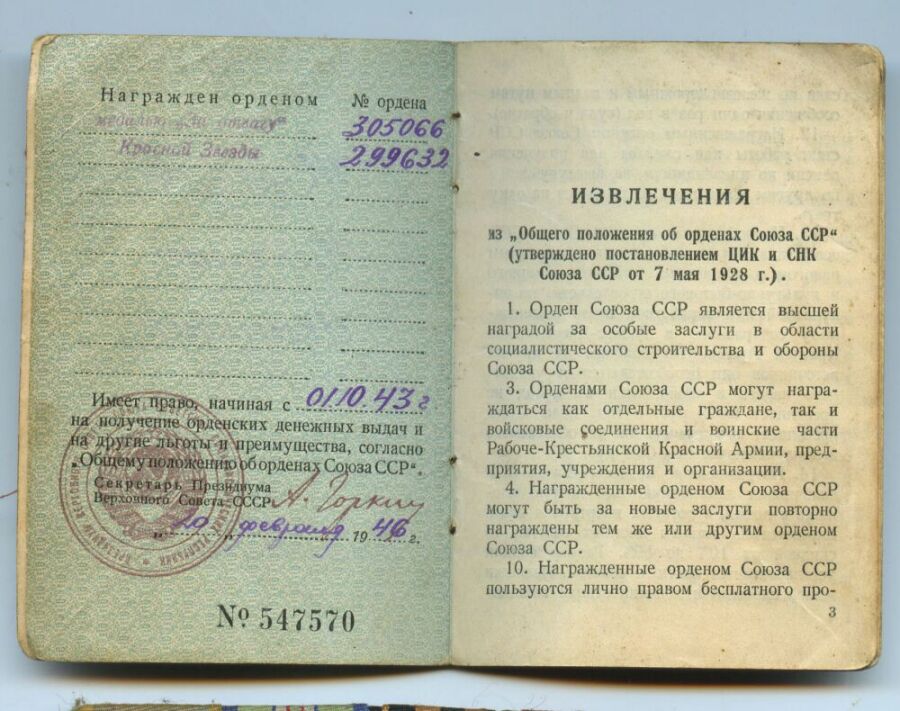 Награжден орденом № ордена
медалью „За отвагу“ 305066
Красной Звезды 299632
Имеет право, начиная с 01.10.43 г.
на получение орденских денежных выдач и
на другие льготы и преимущества, согласно
„Общему положению об орденах Союза ССР“.
Секретарь Президиума
Верховного Совета СССР А. Горкин
„20“ февраля 1946 г.
№ 547570
ИЗВЛЕЧЕНИЯ
из „Общего положения об орденах Союза ССР“
(утверждено постановлением ЦИК и СНК
Союза ССР от 7 мая 1928 г.).
1. Орден Союза ССР является высшей
наградой за особые заслуги в области
социалистического строительства и обороны
Союза ССР.
3. Орденами Союза ССР могут награ-
ждаться как отдельные граждане, так и
войсковые соединения и воинские части
Рабоче-Крестьянской Красной Армии, пред-
приятия, учреждения и организации.
4. Награжденные орденом Союза ССР
могут быть за новые заслуги повторно
награждены тем же или другим орденом
Союза ССР.
10. Награжденные орденом Союза ССР
пользуются лично правом бесплатного про-
3